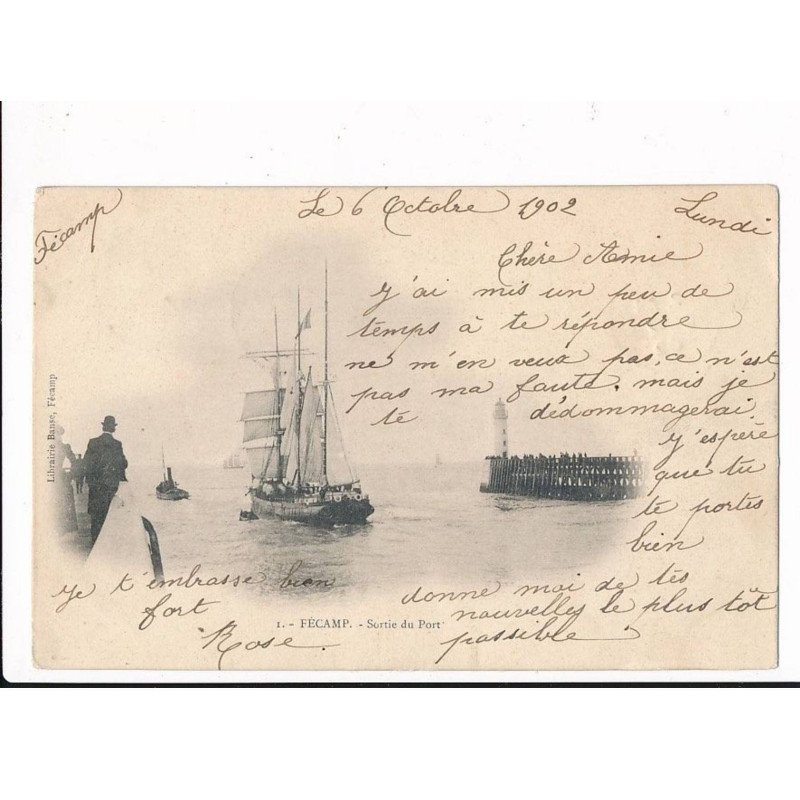 Fécamp
Le 6 Octobre 1902
Lundi
Chère Amie
J'ai mis un peu de
temps à te répondre
ne m'en veux pas, ce n'est
pas ma faute. mais je
te dédommagerai
J'espère
que tu
te portes
bien
donne moi de tes
nouvelles le plus tôt
possible
Je t'embrasse bien
fort
Rose
1. - FÉCAMP. - Sortie du Port
Librairie Banse, Fécamp